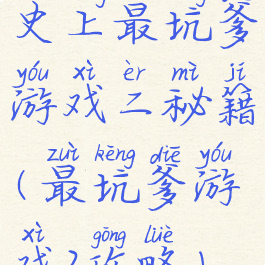 史上最坑爹
yóu xì èr mì jí
游戏二秘籍
zuì kēng diē yóu
(最坑爹游
xì gōng lüè
戏2攻略)